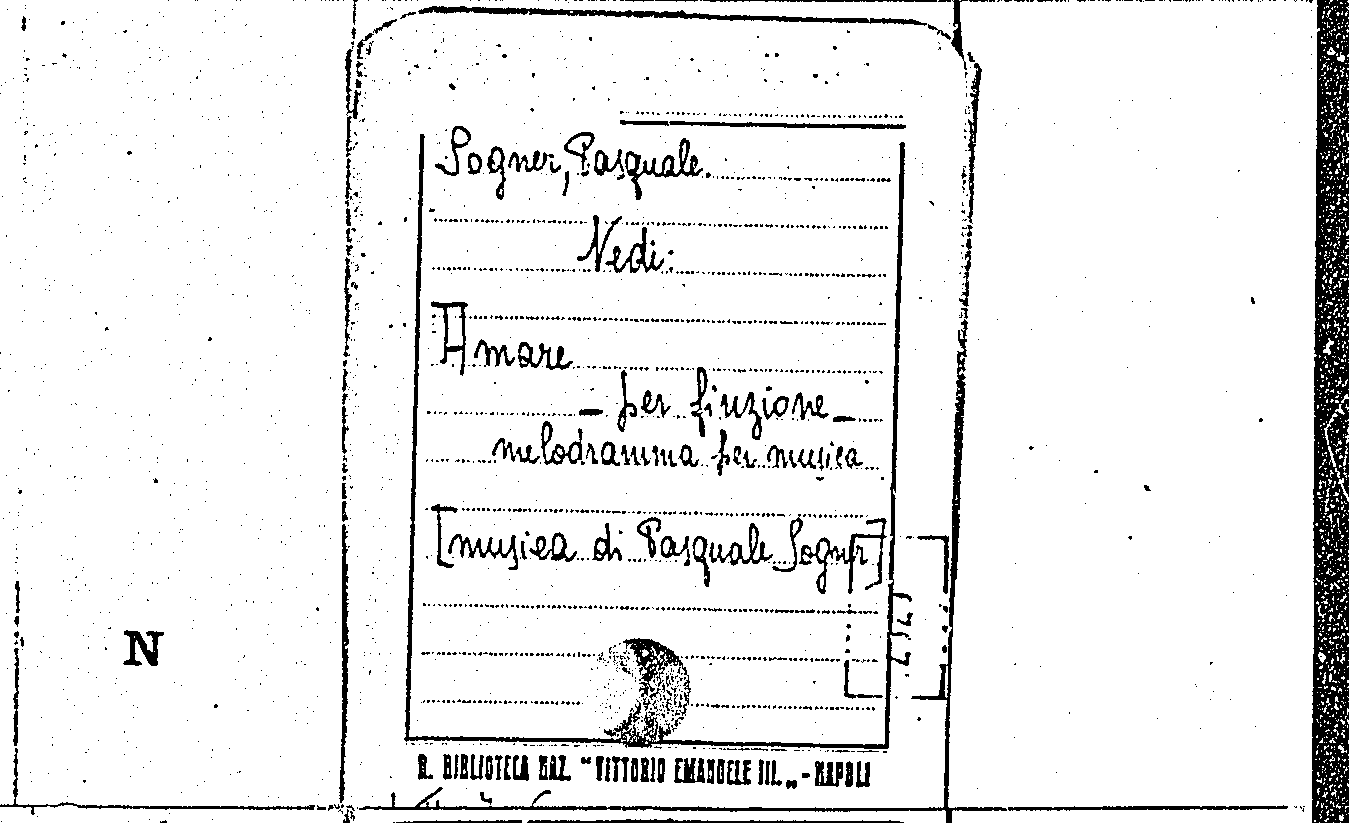 Sogner, Pasquale.
Vedi:
Amare
- per finzione -
melodramma per musica
[musica di Pasquale Sogner]
N
R. BIBLIOTECA NAZ. "VITTORIO EMANUELE III. „ - NAPOLI